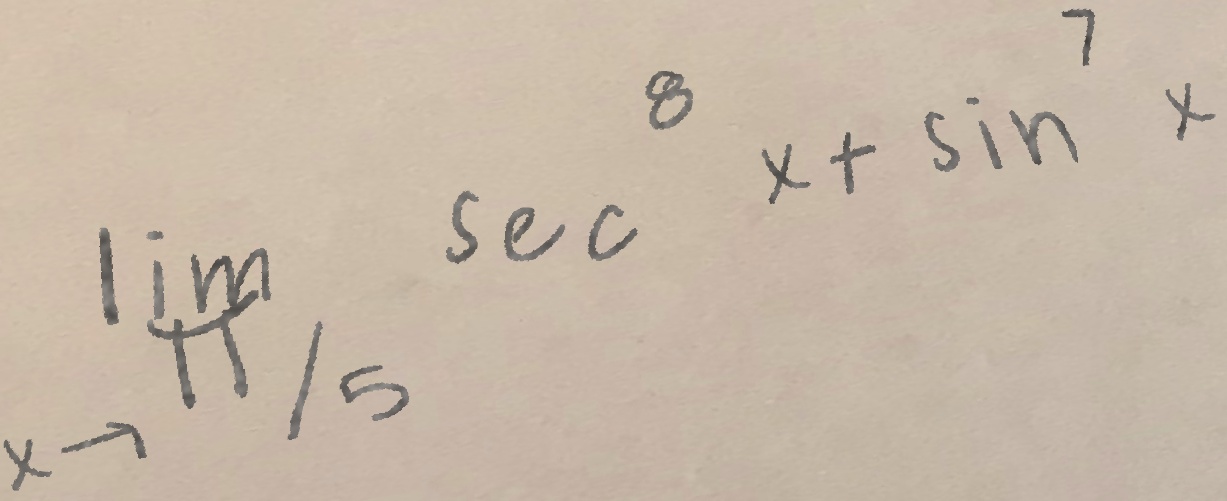 lim x→π/5 sec^8 x + sin^7 x